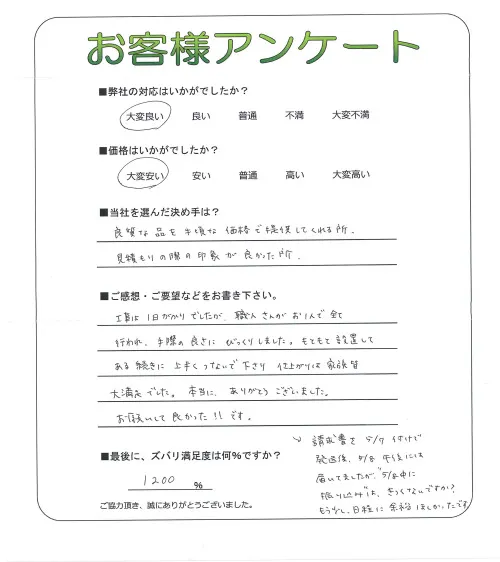 お客様アンケート
■弊社の対応はいかがでしたか？
大変良い 良い 普通 不満 大変不満
■価格はいかがでしたか？
大変安い 安い 普通 高い 大変高い
■当社を選んだ決め手は？
良質な品を手頃な価格で提供してくれる所。
見積もりの際の印象が良かった所。
■ご感想・ご要望などをお書き下さい。
工事は1日がかりでしたが、職人さんがお1人で全て
行われ、手際の良さにびっくりしました。もともと設置して
ある続きに上手くつないで下さり仕上がりは家族皆
大満足でした。本当に、ありがとうございました。
お願いして良かった!!です。
■最後に、ズバリ満足度は何%ですか？
1200 %
ご協力頂き、誠にありがとうございました。
請求書を5/7付けで
発送後、5/8午後には
届いてましたが、5/8中に
振り込みは、きつくないですか？
もう少し、日程に余裕ほしかったです